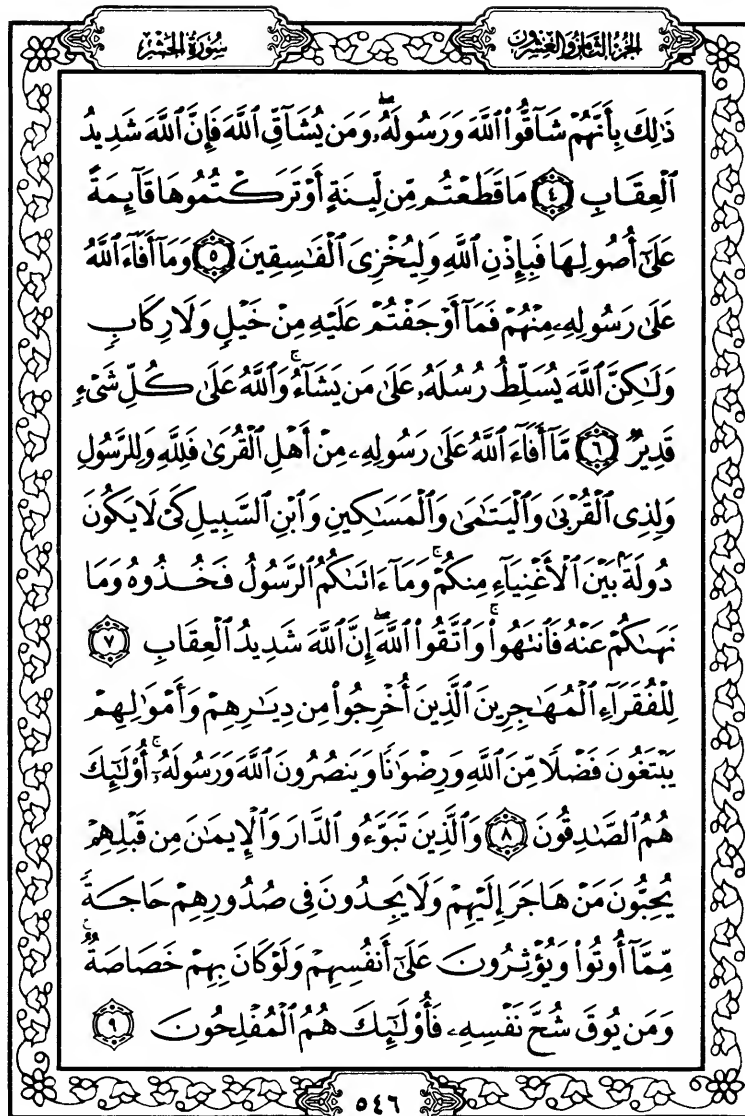 سُورَةُ الحَشْرِ
الجُزْءُ الثَّامِنُ وَالعِشْرُونَ
ذَٰلِكَ بِأَنَّهُمْ شَآقُّوا۟ ٱللَّهَ وَرَسُولَهُۥ ۖ وَمَن يُشَآقِّ ٱللَّهَ فَإِنَّ ٱللَّهَ شَدِيدُ
ٱلْعِقَابِ ٤ مَا قَطَعْتُم مِّن لِّينَةٍ أَوْ تَرَكْتُمُوهَا قَآئِمَةً
عَلَىٰٓ أُصُولِهَا فَبِإِذْنِ ٱللَّهِ وَلِيُخْزِىَ ٱلْفَـٰسِقِينَ ٥ وَمَآ أَفَآءَ ٱللَّهُ
عَلَىٰ رَسُولِهِۦ مِنْهُمْ فَمَآ أَوْجَفْتُمْ عَلَيْهِ مِنْ خَيْلٍ وَلَا رِكَابٍ
وَلَـٰكِنَّ ٱللَّهَ يُسَلِّطُ رُسُلَهُۥ عَلَىٰ مَن يَشَآءُ ۚ وَٱللَّهُ عَلَىٰ كُلِّ شَىْءٍ
قَدِيرٌ ٦ مَّآ أَفَآءَ ٱللَّهُ عَلَىٰ رَسُولِهِۦ مِنْ أَهْلِ ٱلْقُرَىٰ فَلِلَّهِ وَلِلرَّسُولِ
وَلِذِى ٱلْقُرْبَىٰ وَٱلْيَتَـٰمَىٰ وَٱلْمَسَـٰكِينِ وَٱبْنِ ٱلسَّبِيلِ كَىْ لَا يَكُونَ
دُولَةًۢ بَيْنَ ٱلْأَغْنِيَآءِ مِنكُمْ ۚ وَمَآ ءَاتَىٰكُمُ ٱلرَّسُولُ فَخُذُوهُ وَمَا
نَهَىٰكُمْ عَنْهُ فَٱنتَهُوا۟ ۚ وَٱتَّقُوا۟ ٱللَّهَ ۖ إِنَّ ٱللَّهَ شَدِيدُ ٱلْعِقَابِ ٧
لِلْفُقَرَآءِ ٱلْمُهَـٰجِرِينَ ٱلَّذِينَ أُخْرِجُوا۟ مِن دِيَـٰرِهِمْ وَأَمْوَٰلِهِمْ
يَبْتَغُونَ فَضْلًا مِّنَ ٱللَّهِ وَرِضْوَٰنًا وَيَنصُرُونَ ٱللَّهَ وَرَسُولَهُۥٓ ۚ أُو۟لَـٰٓئِكَ
هُمُ ٱلصَّـٰدِقُونَ ٨ وَٱلَّذِينَ تَبَوَّءُو ٱلدَّارَ وَٱلْإِيمَـٰنَ مِن قَبْلِهِمْ
يُحِبُّونَ مَنْ هَاجَرَ إِلَيْهِمْ وَلَا يَجِدُونَ فِى صُدُورِهِمْ حَاجَةً
مِّمَّآ أُوتُوا۟ وَيُؤْثِرُونَ عَلَىٰٓ أَنفُسِهِمْ وَلَوْ كَانَ بِهِمْ خَصَاصَةٌ ۚ
وَمَن يُوقَ شُحَّ نَفْسِهِۦ فَأُو۟لَـٰٓئِكَ هُمُ ٱلْمُفْلِحُونَ ٩
٥٤٦